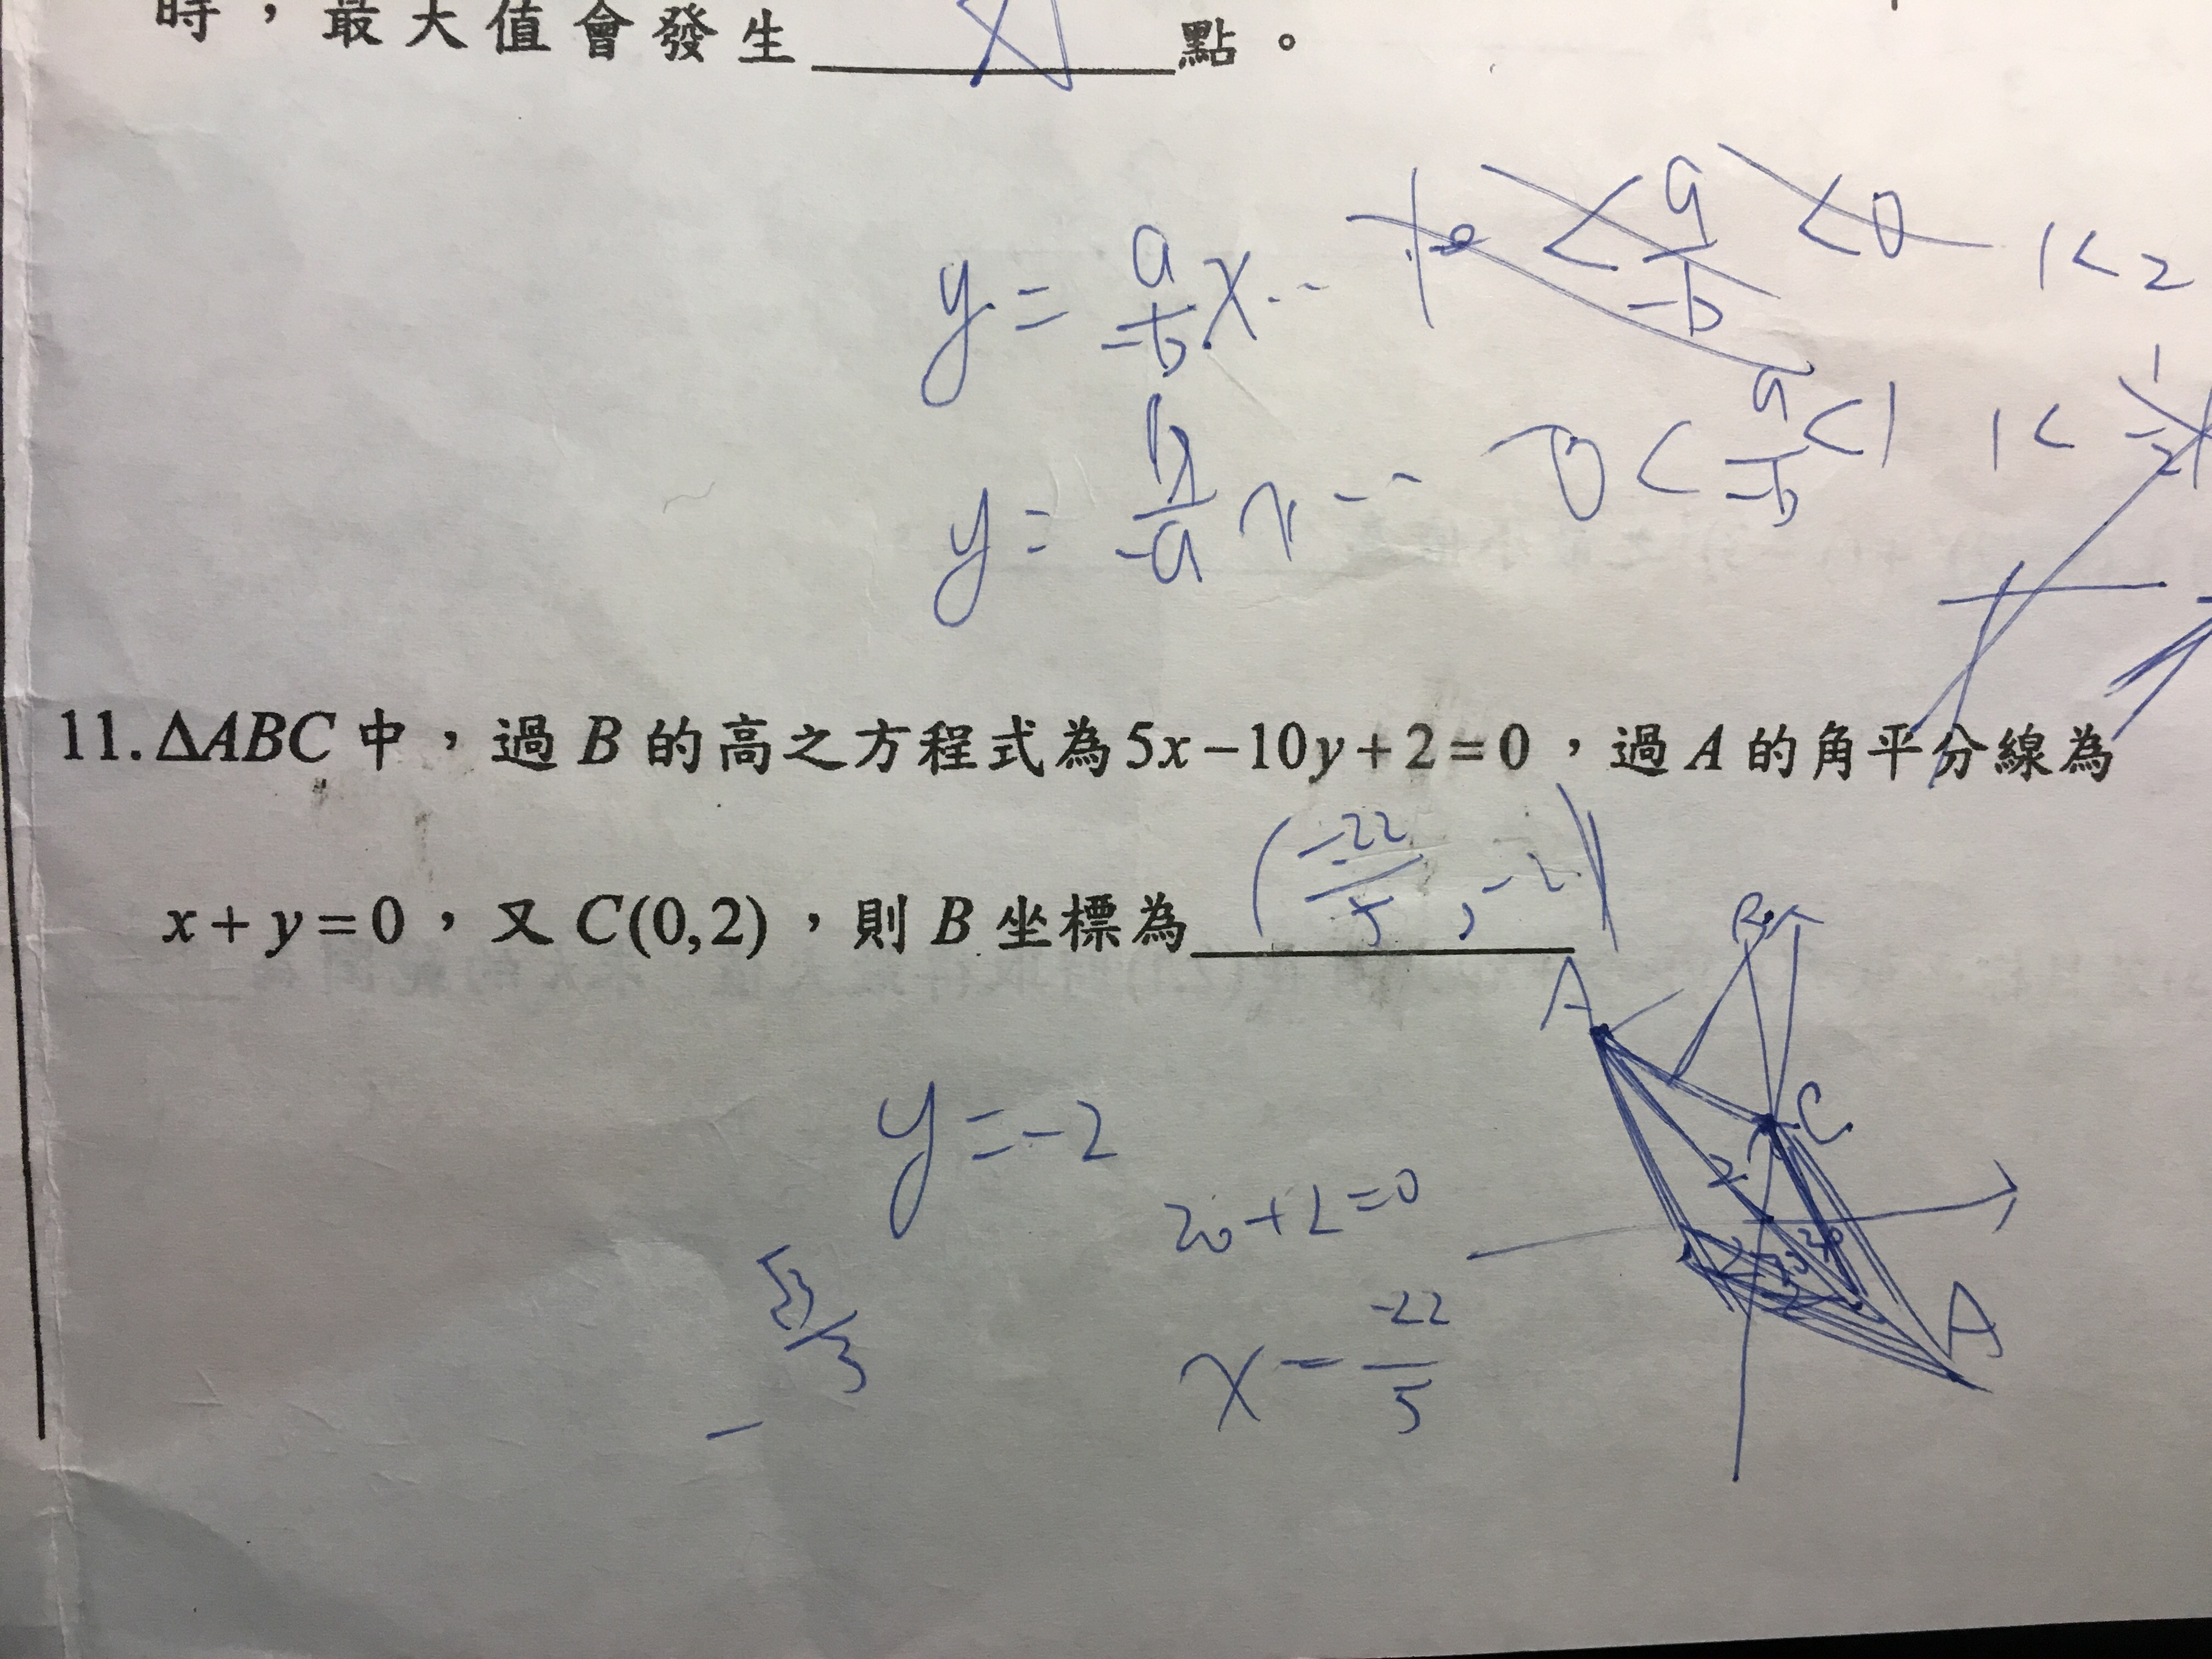 時，最大值會發生 ________ 點。
y = a/-b x -- < a/-b < 0 1 < 2
y = b/-a x -- 0 < a/-b < 1 1 <
11. ΔABC 中，過 B 的高之方程式為 5x−10y+2=0，過 A 的角平分線為
x+y=0，又 C(0,2)，則 B 坐標為 (-22/5, -2)
B
A
C
y = -2
20+2=0
x = -22/5
A